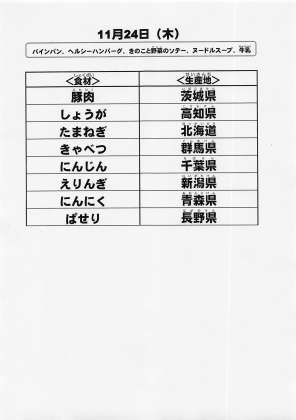 11月24日（木）
パインパン、ヘルシーハンバーグ、きのこと野菜のソテー、ヌードルスープ、牛乳
＜食材＞ ＜生産地＞
豚肉 茨城県
しょうが 高知県
たまねぎ 北海道
きゃべつ 群馬県
にんじん 千葉県
えりんぎ 新潟県
にんにく 青森県
ぱせり 長野県